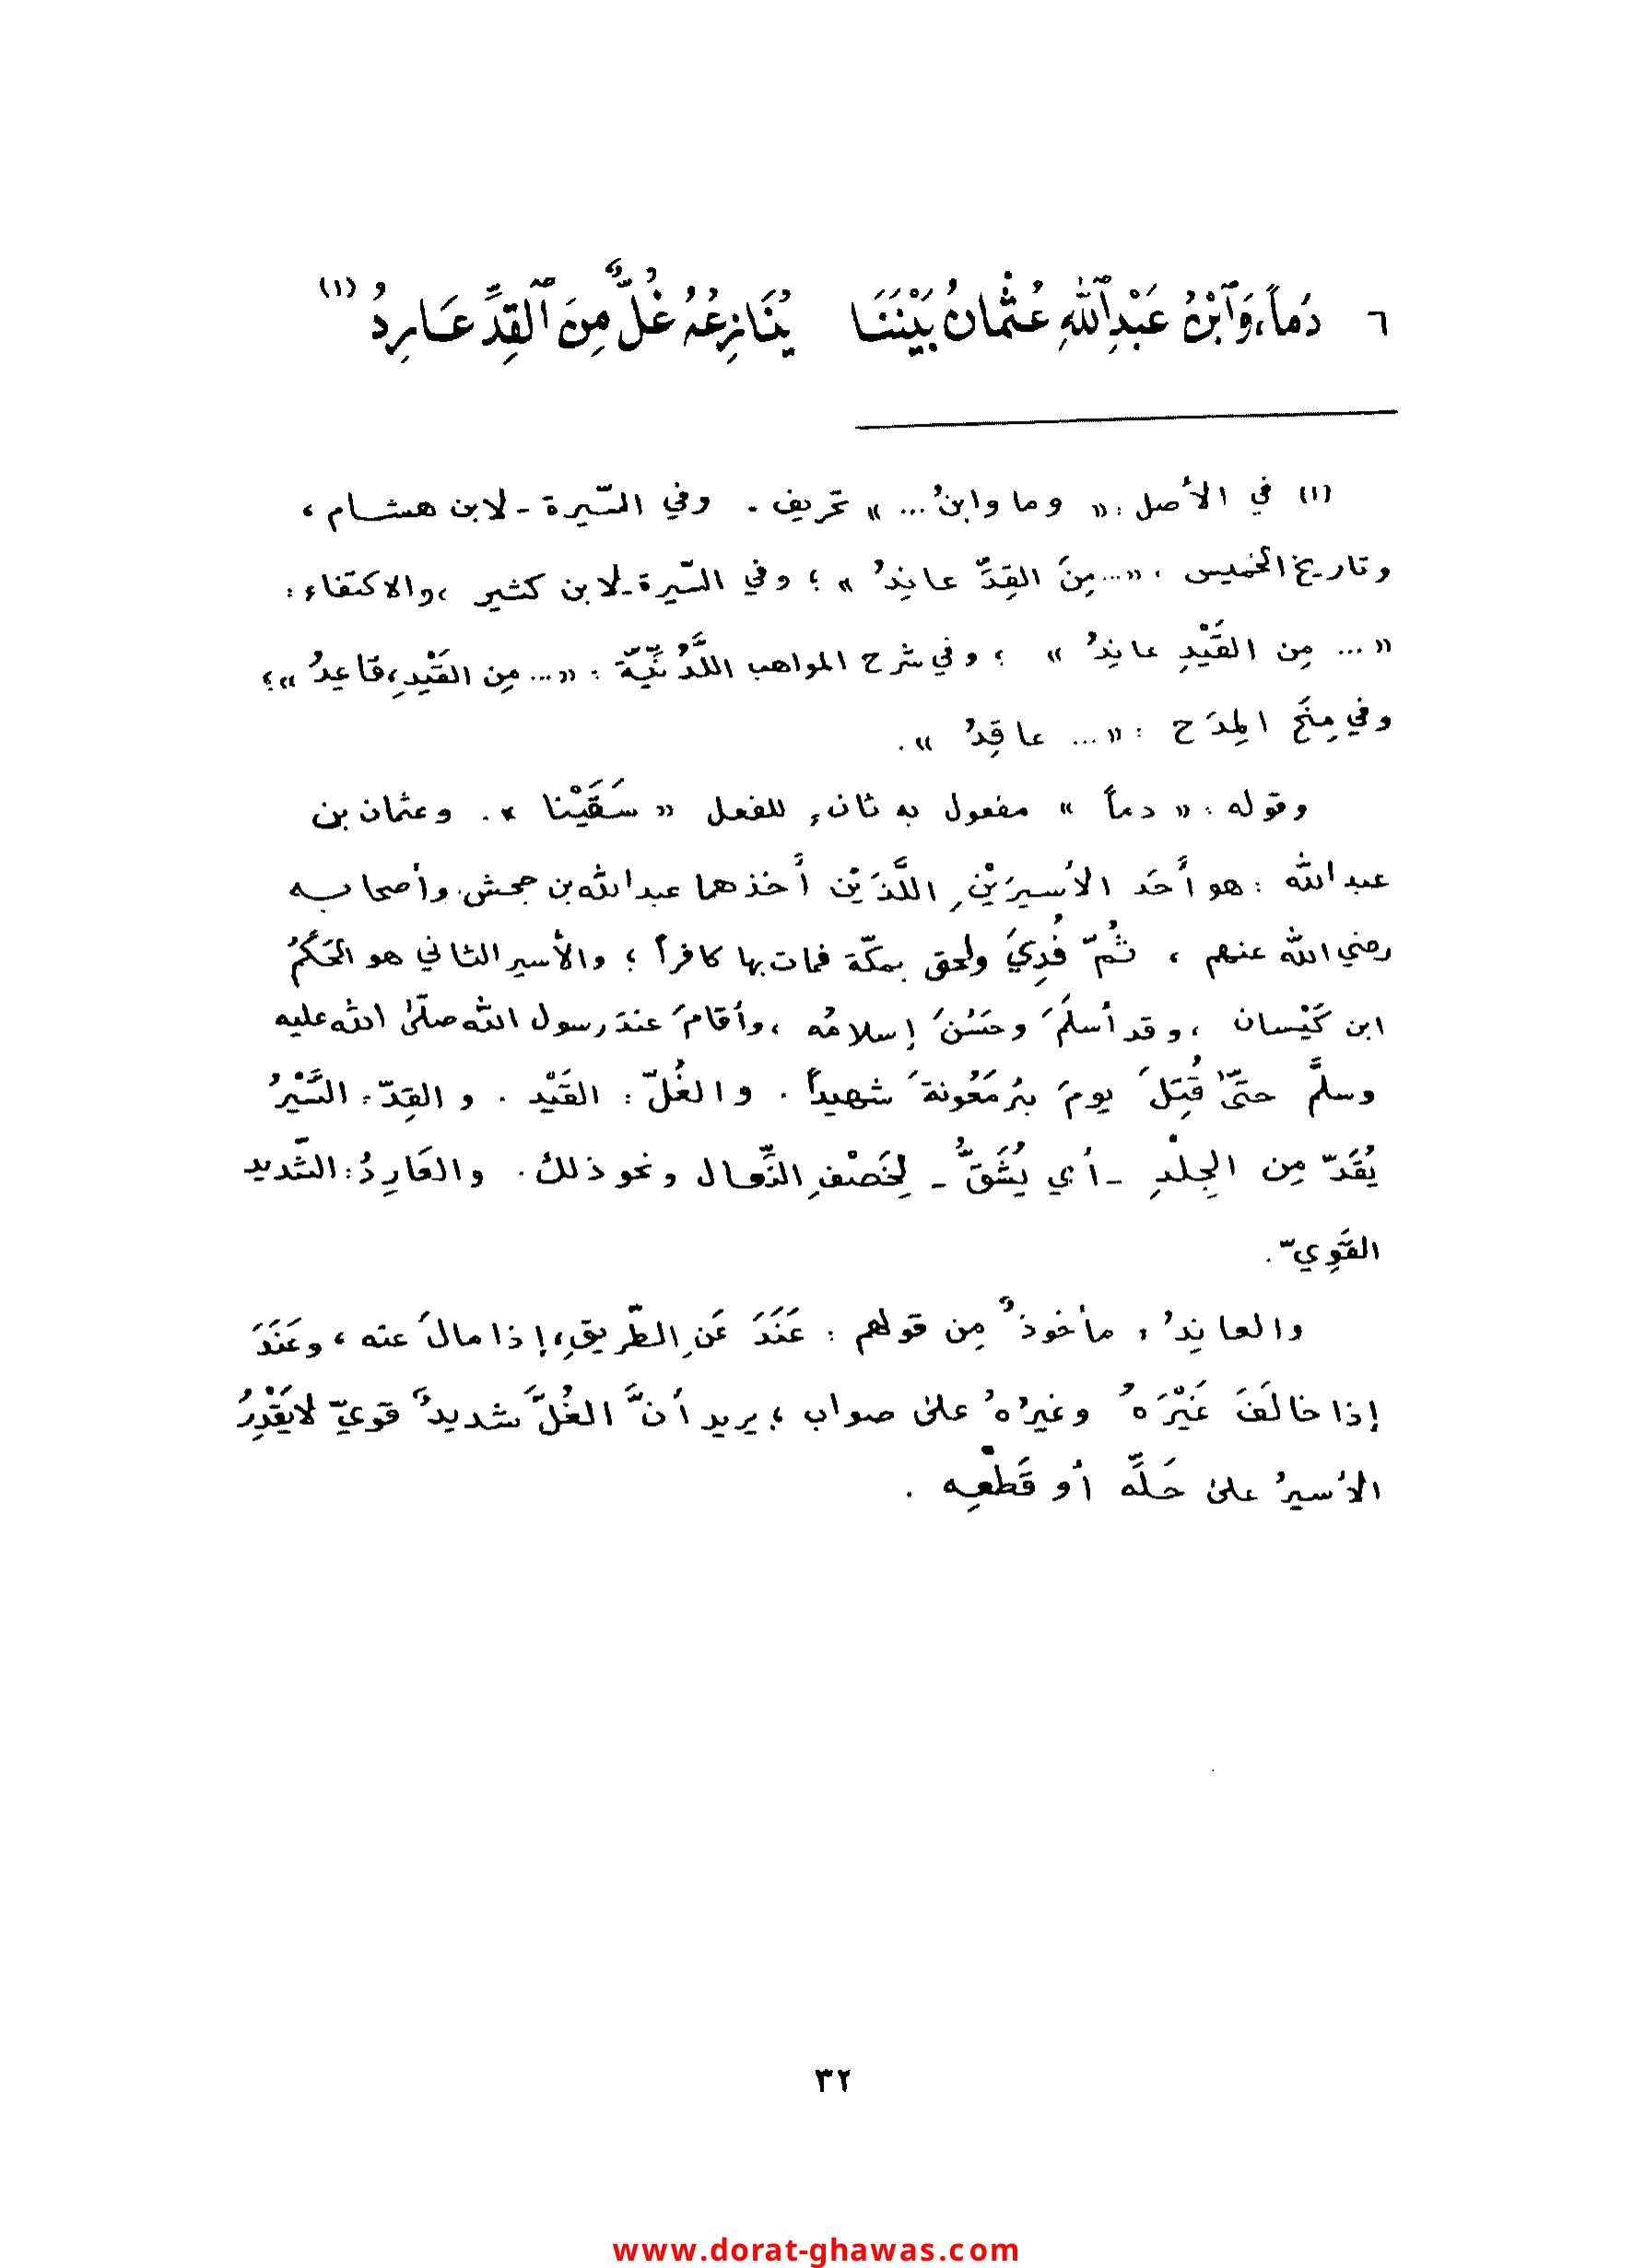 ٦ دَماً، وَٱبْنُ عَبْدِ ٱللهِ عُثْمَانُ بَيْنَنَا يُنَازِعُهُ غُلٌّ مِنَ ٱلْقِدِّ عَارِدُ (١)
(١) في الأصل: « وما وابنُ ... » تحريف. وفي السّيرة - لابن هشام،
وتاريخ الخميس: «... مِنَ القِدِّ عانِدُ » ؛ وفي السّيرة - لابن كثير، والاكتفاء:
« ... مِن القَيْدِ عانِدُ » ؛ وفي شرح المواهب اللَّدُنِّيّة: « ... مِن القَيْدِ، قاعِدُ » ؛
وفي مِنَح المِدَح : « ... عاقِدُ ».
وقوله: « دماً » مفعول به ثانٍ، للفعل « سَقَيْنا ». وعثمان بن
عبد الله : هو أَحَد الأسيرَيْنِ اللَّذَيْن أخذهما عبد الله بن جحش. وأصحابه
رضي الله عنهم ، ثُمّ فُدِيَ ولحق بمكّة فمات بها كافراً ؛ والأسير الثاني هو الحَكَمُ
ابن كَيْسان ، وقد أسلَمَ وحَسُنَ إسلامُه ، وأقامَ عندَ رسول الله صلّىٰ الله عليه
وسلَّم حتّىٰ قُتِلَ يومَ بئر مَعُونةَ شهيداً . والغُلّ : القَيْد . والقِدّ : السَّيْرُ
يُقَدّ مِن الجِلْدِ - أي يُشَقُّ - لِخَصْفِ النِّعال ونحو ذلك . والعَارِدُ : الشّديد
القَوِيّ .
والعانِدُ ، مأخوذٌ مِن قولهم : عَنَدَ عَنِ الطّريقِ، إذا مالَ عنه ، وعَنَدَ
إذا خالَفَ غَيْرَهُ وغيرُهُ علىٰ صواب ، يريد أنَّ الغُلَّ شديدٌ قويّ لا يَقْدِرُ
الأسيرُ علىٰ حَلِّه أو قَطْعِه .
٣٢
www.dorat-ghawas.com